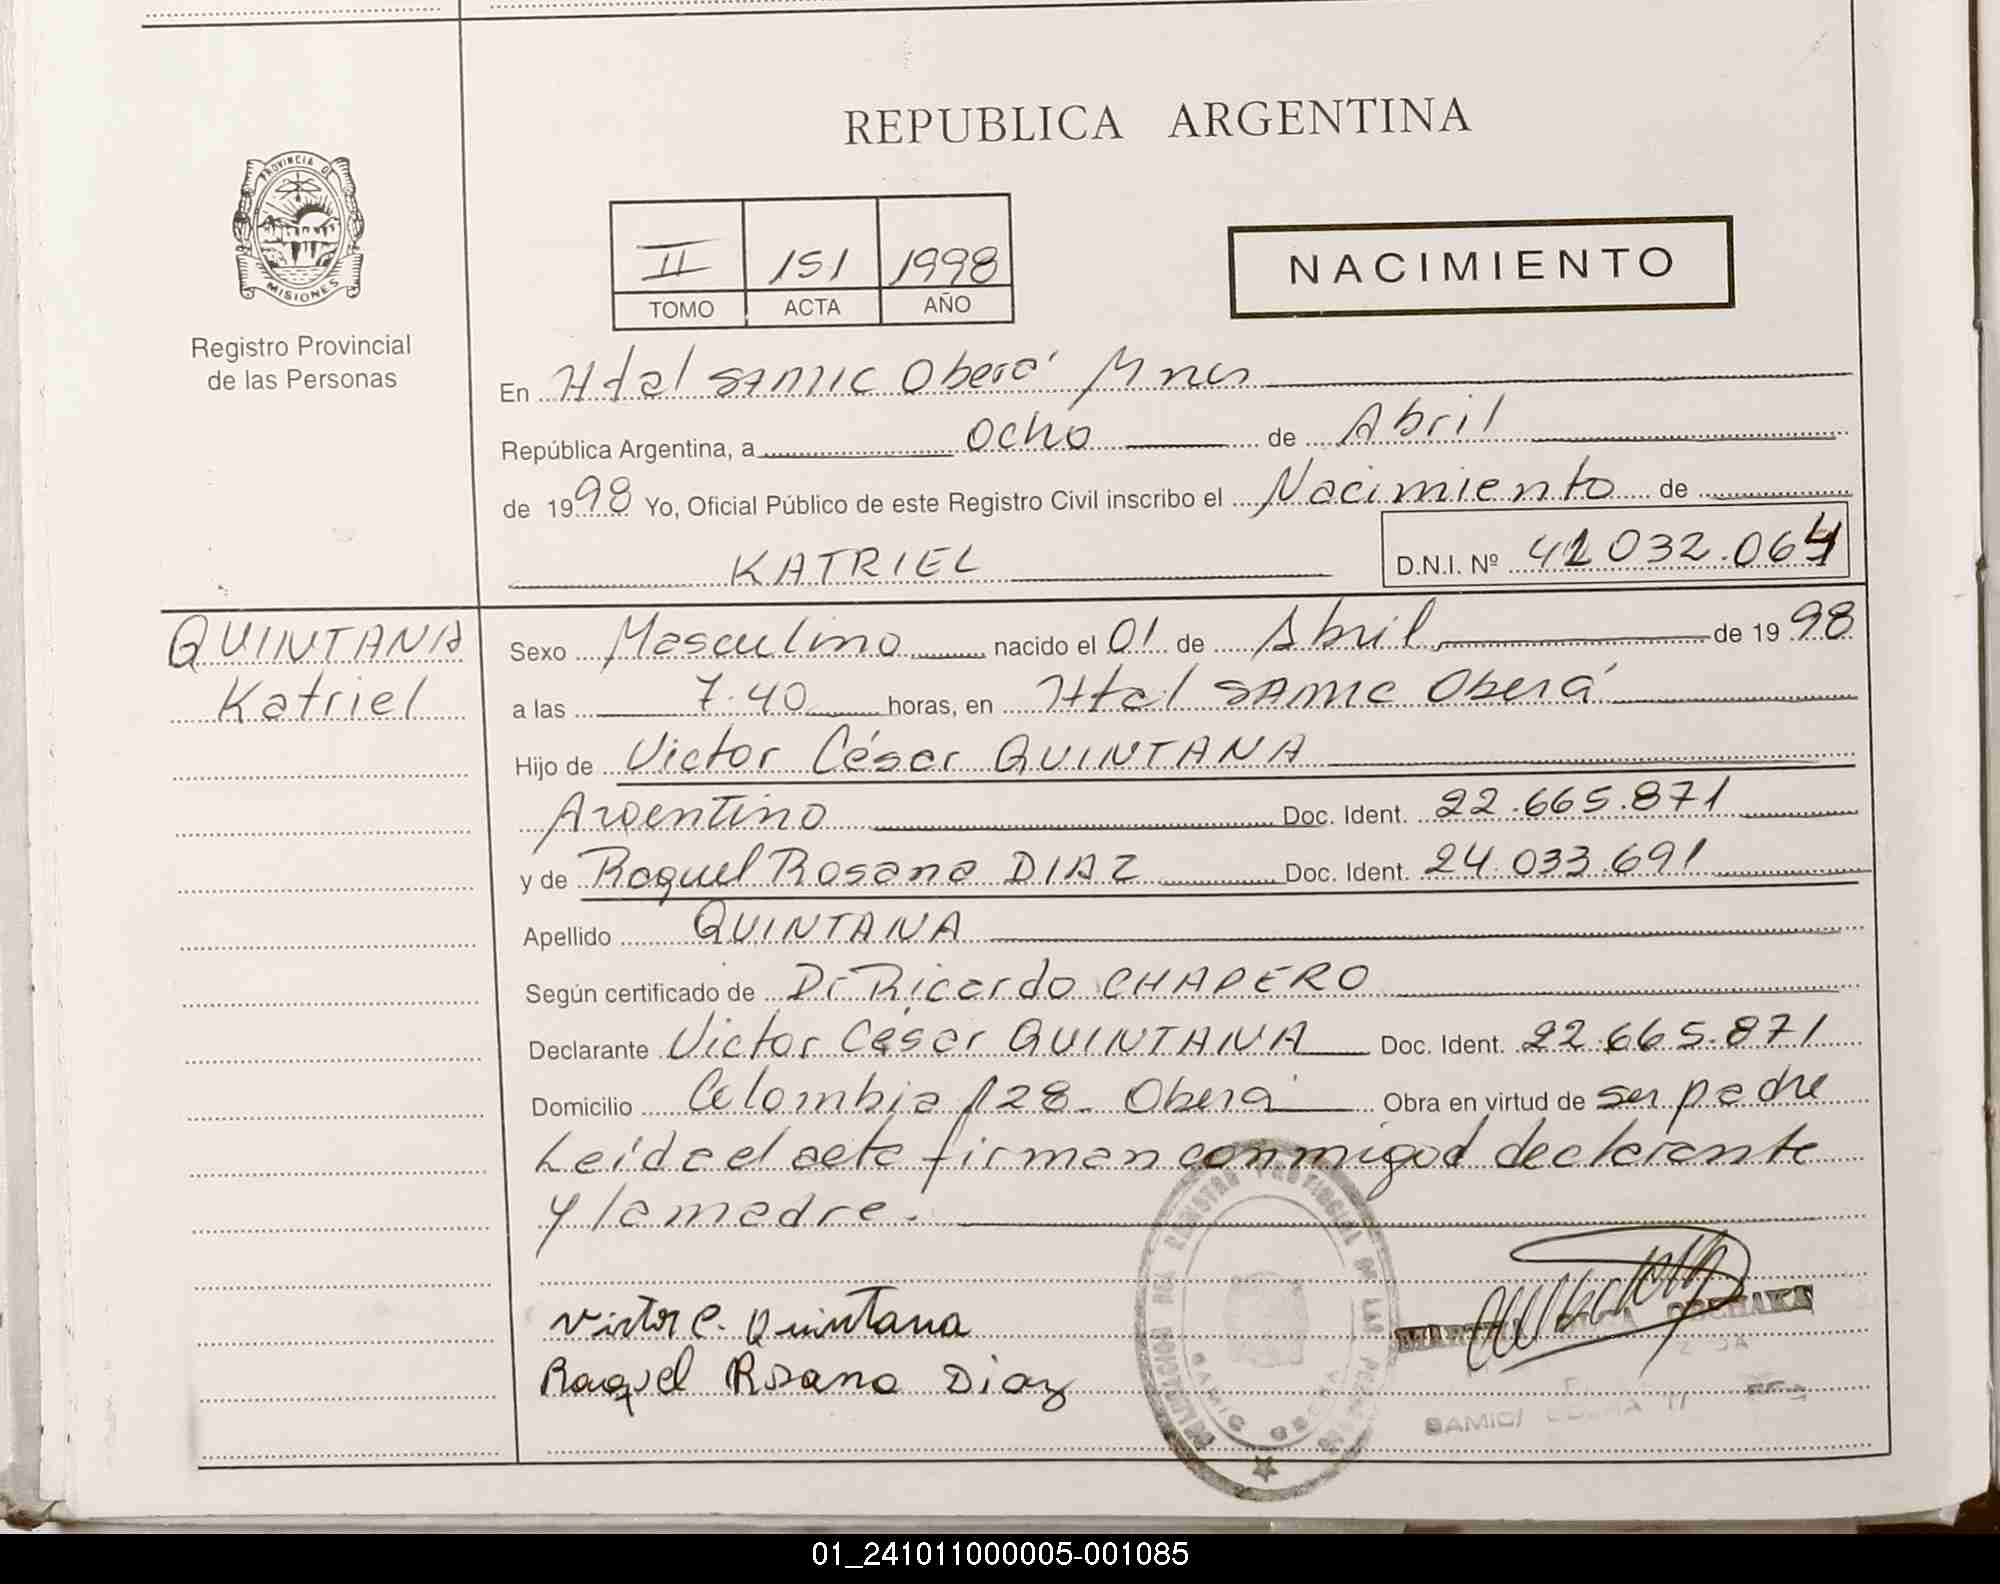 REPUBLICA ARGENTINA
PROVINCIA DE
MISIONES
Registro Provincial
de las Personas
II 151 1998
TOMO ACTA AÑO
NACIMIENTO
En Htal SAMIC Oberá Mnes
República Argentina, a ocho de Abril
de 1998 Yo, Oficial Público de este Registro Civil inscribo el Nacimiento de
KATRIEL D.N.I. Nº 41 032.064
QUINTANA
Katriel
Sexo Masculino nacido el 01 de Abril de 1998
a las 7.40 horas, en Htal SAMIC Oberá
Hijo de Victor César QUINTANA
Argentino Doc. Ident. 22.665.871
y de Raquel Rosana DIAZ Doc. Ident. 24.033.691
Apellido QUINTANA
Según certificado de Dr Ricardo CHAPERO
Declarante Victor César QUINTANA Doc. Ident. 22.665.871
Domicilio Colombia 128 - Oberá Obra en virtud de ser padre
Leída el acta firman conmigo el declarante
y la madre.
Victor C. Quintana
Raquel Rosana Diaz
REGISTRO PROVINCIAL DE LAS
SAMIC
01_241011000005-001085